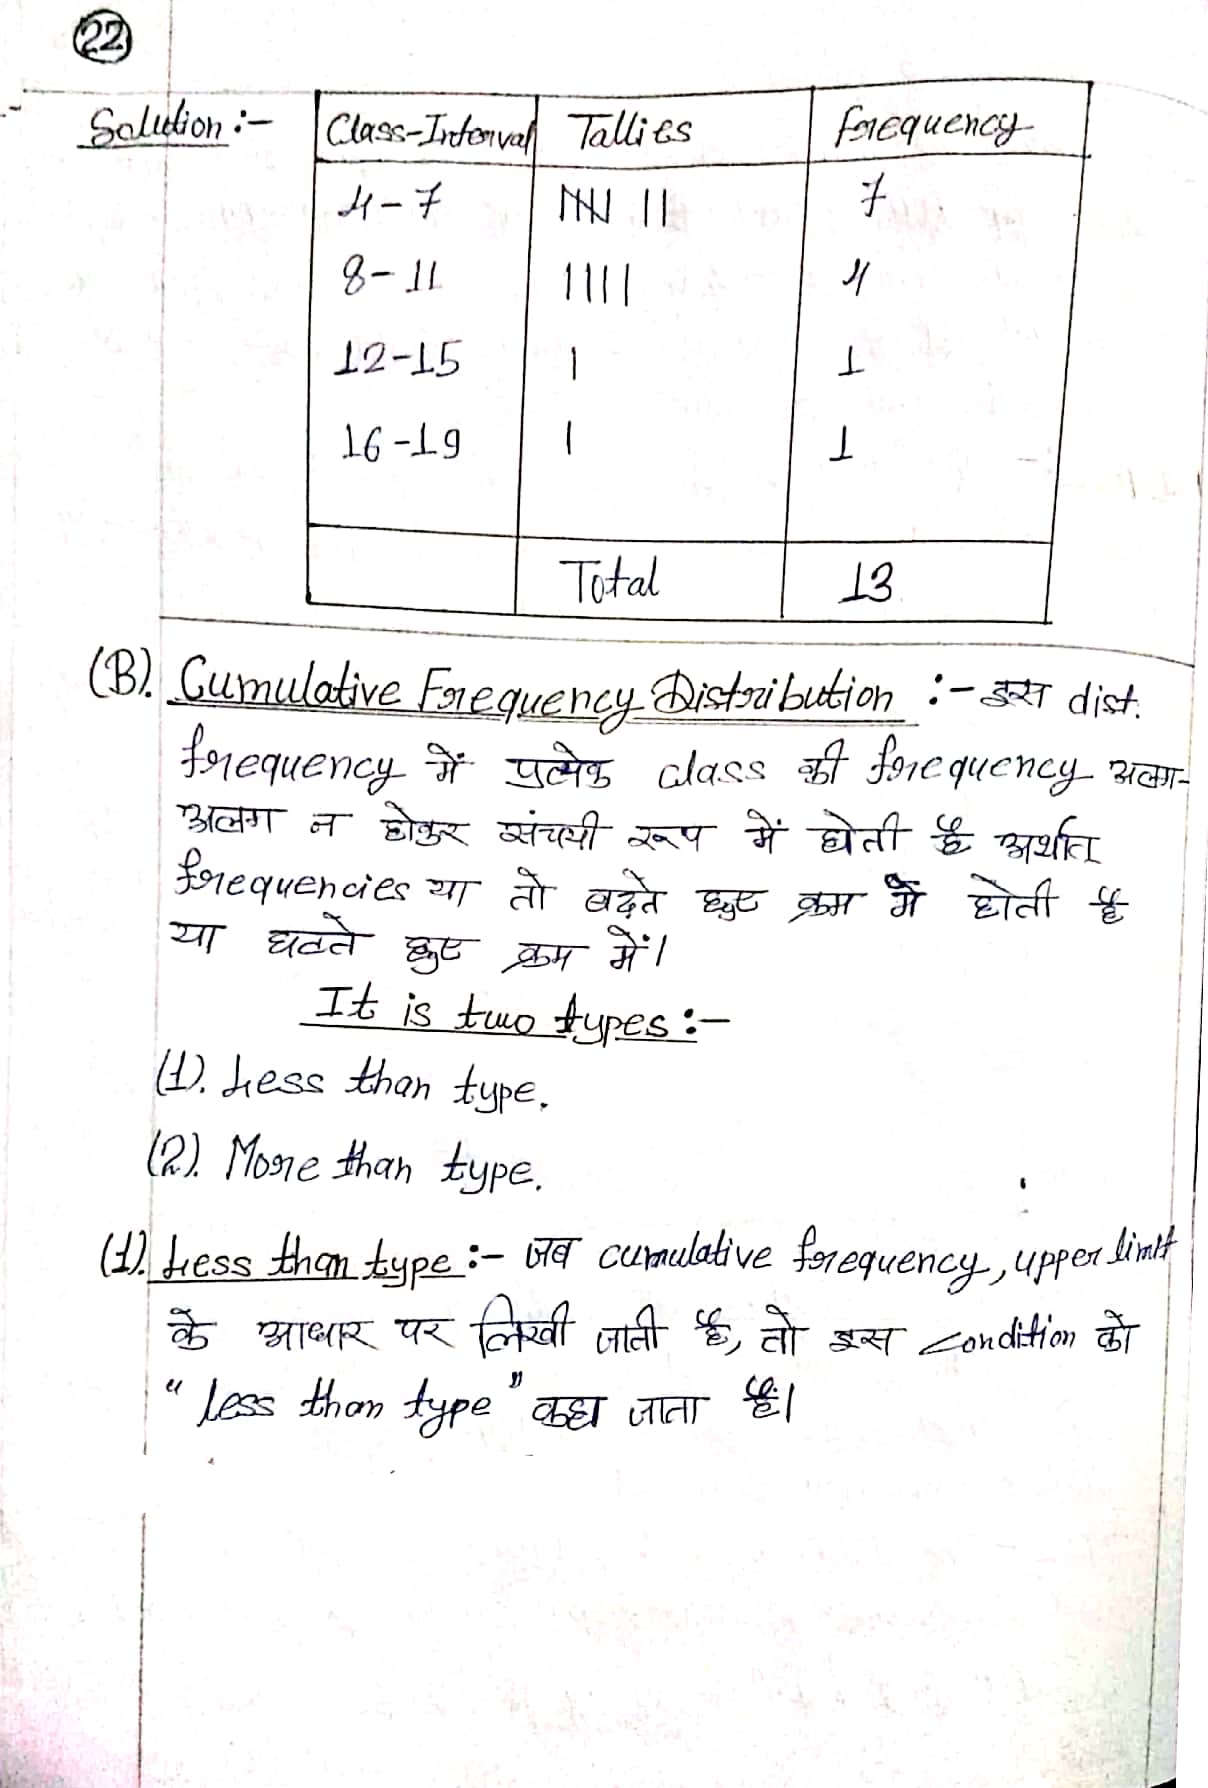 22
Solution :-
Class-Interval Tallies frequency
4-7 |||| || 7
8-11 |||| 4
12-15 | 1
16-19 | 1
Total 13
(B). Cumulative Frequency Distribution :- इस dist.
frequency में प्रत्येक class की frequency अलग-
अलग न होकर संचयी रूप में होती है अर्थात
frequencies या तो बढ़ते हुए क्रम में होती है
या घटते हुए क्रम में।
It is two types :-
(1). Less than type.
(2). More than type.
(1). Less than type :- जब cumulative frequency, upper limit
के आधार पर लिखी जाती है, तो इस condition को
" less than type " कहा जाता है।